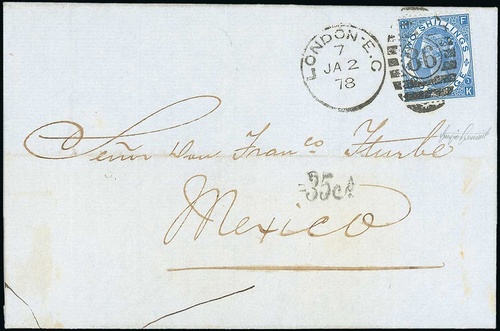 LONDON·E.C
7
JA 2
78
TWO SHILLINGS
F
K
Señor Don Franco Iturbe
35cs
Mexico